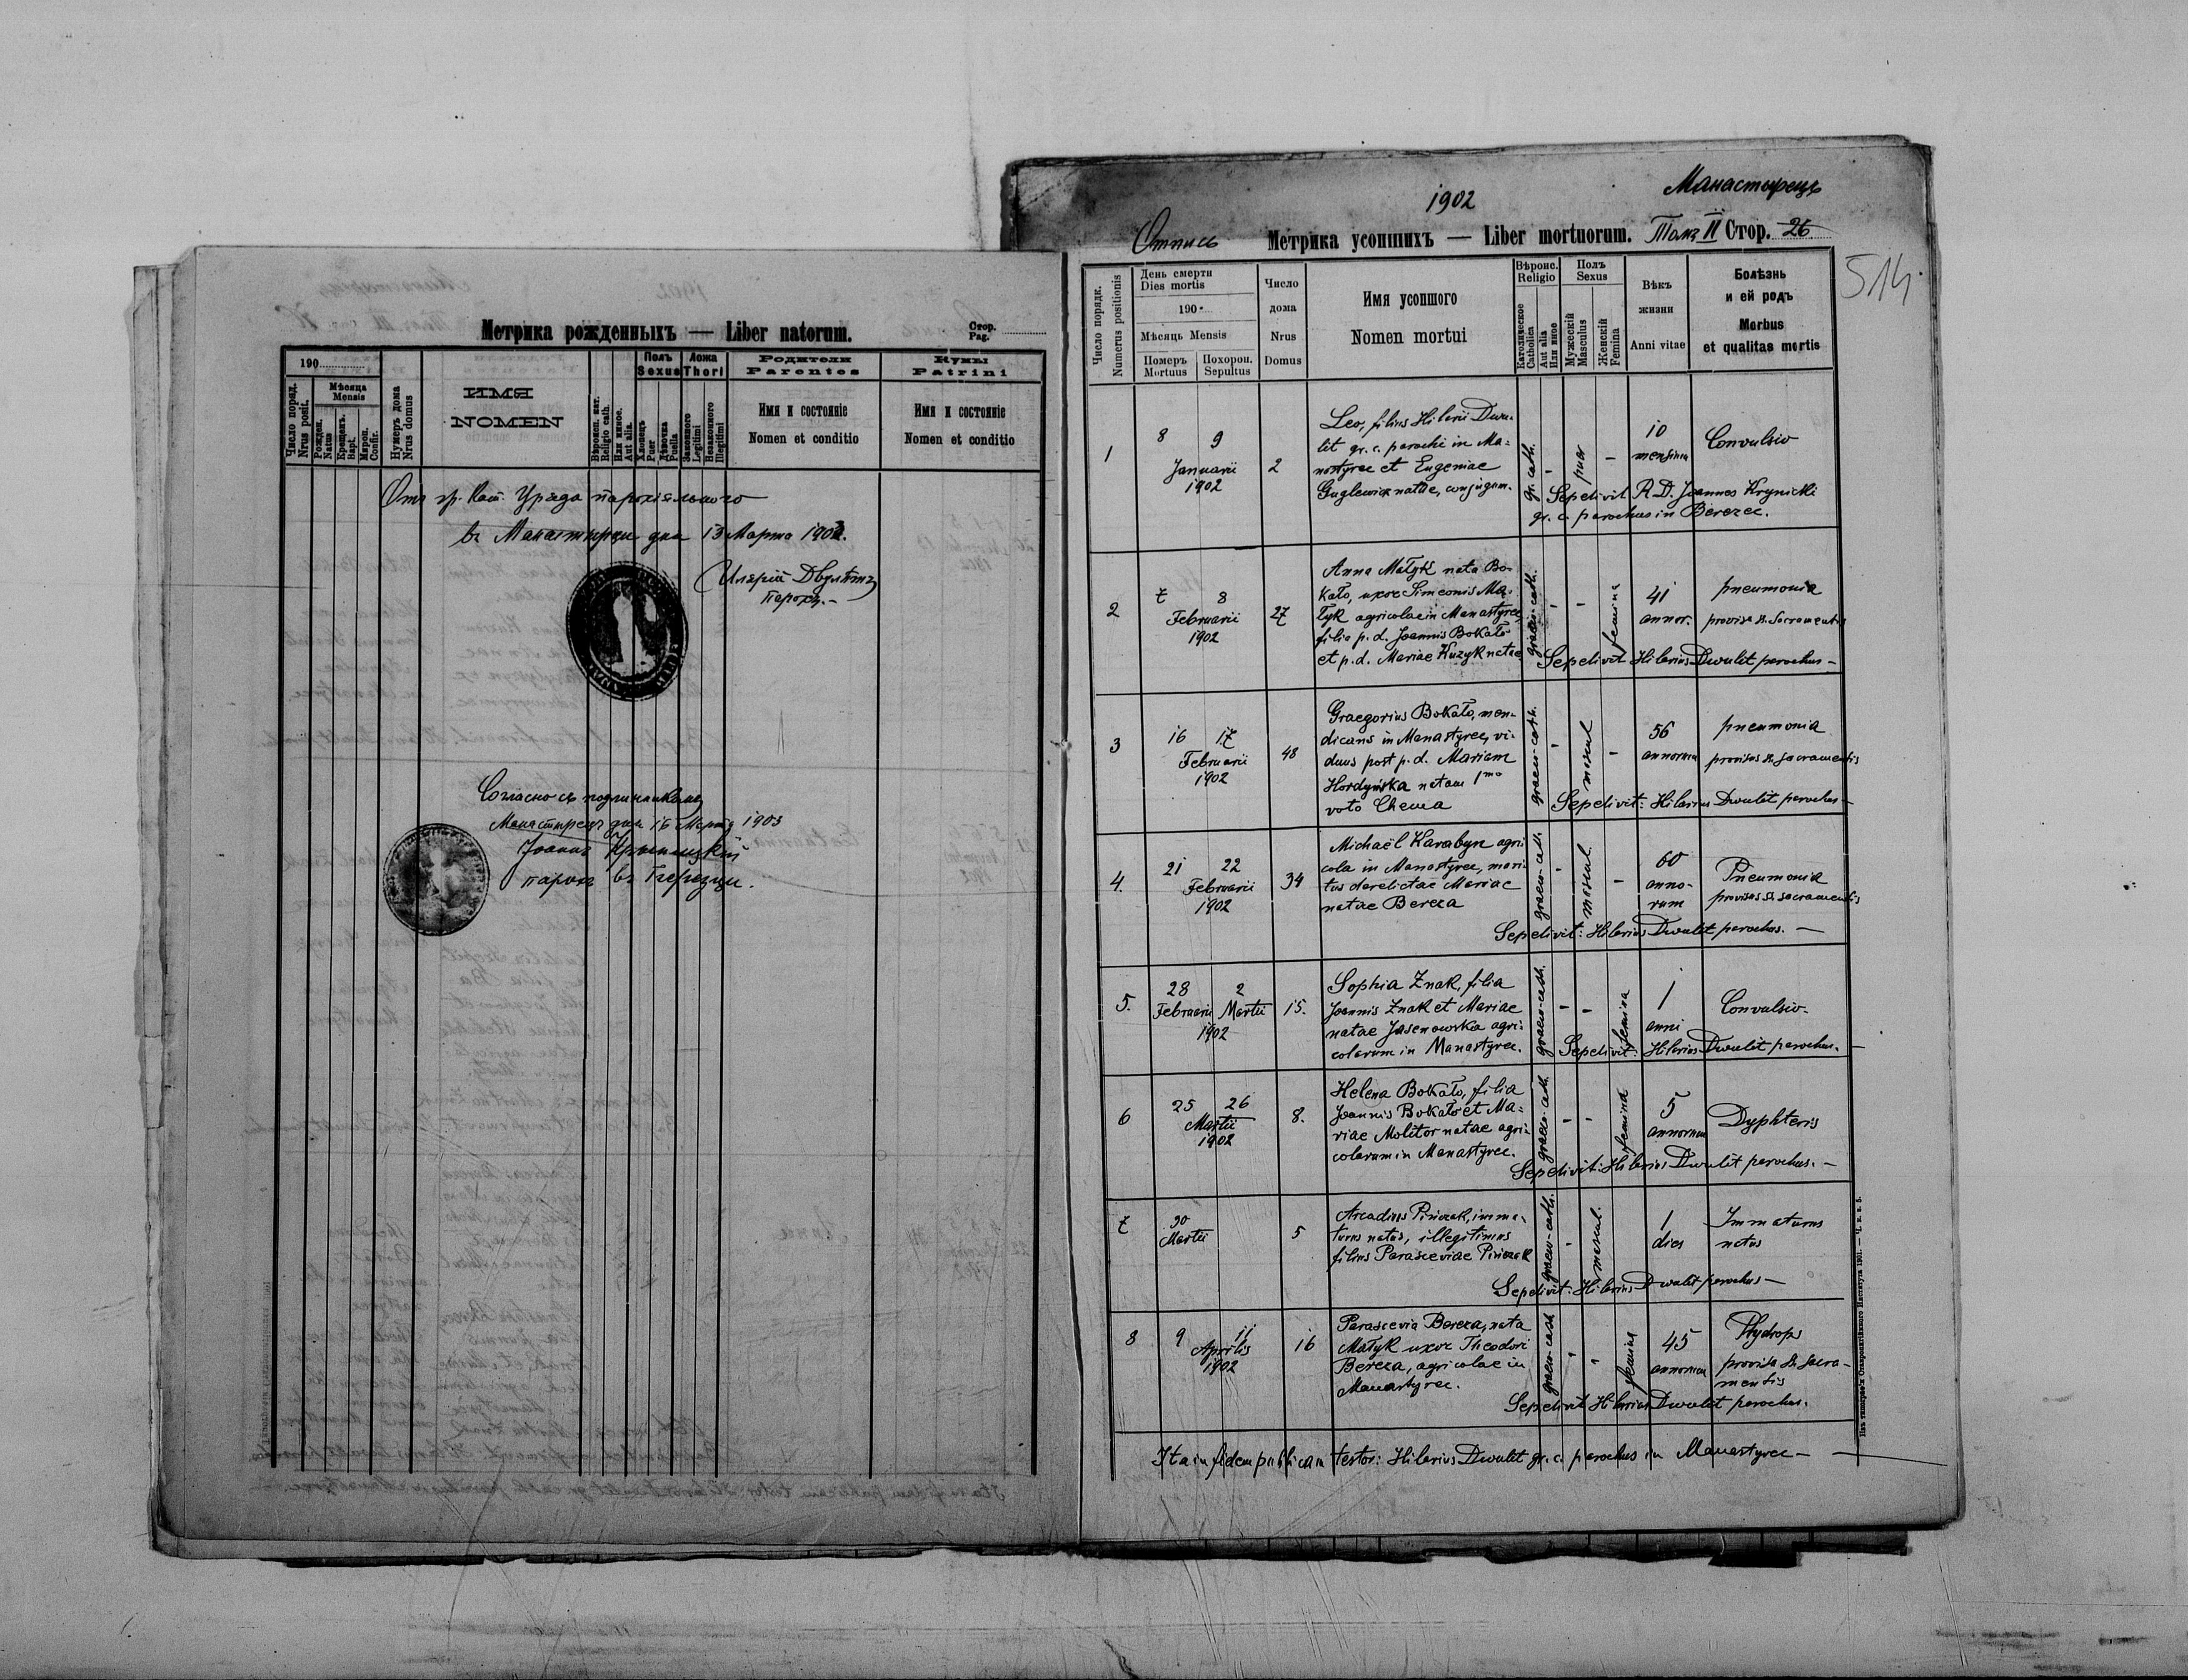 Метрика рожденныхъ — Liber natorum.
Стор.
Pag.
190
Число поряд.
Nrus posit.
Мѣсяца
Mensis
Рожден.
Natus
Крещенъ.
Bapt.
Миропом.
Confir.
Нумеръ дома
Nrus domus
ИМЯ
NOMEN
Вѣроисп. кат.
Religio cath.
Или иное.
Aut alia.
Полъ
Sexus
Хлопецъ
Puer
Дѣвочка
Puella
Ложа
Thori
Законного
Legitimi
Незаконного
Illegitimi
Родители
Parentes
Имя и состояніе
Nomen et conditio
Кумы
Patrini
Имя и состояніе
Nomen et conditio
Отъ гр. кат. Уряда парохіяльного
въ Манастырци дня 13 Марта 1903.
Иларій Двулѣтъ
парохъ.—
Согласно съ подлинникомъ
Манастырецъ дня 16 Марта 1903
Іоаннъ Крыницкій
парох въ Березци.
1902
Манастырецъ
Отпись
Метрика усопшихъ — Liber mortuorum. Томъ II Стор. 26
514
Число порядк.
Numerus positionis
День смерти
Dies mortis
190
Мѣсяць Mensis
Померъ
Mortuus
Похорон.
Sepultus
Число
дома
Nrus
Domus
Имя усопшого
Nomen mortui
Вѣроис.
Religio
Католическое
Catholica
Aut alia
Или иное
Полъ
Sexus
Мужескій
Masculus
Женскій
Femina
Вѣкъ
жизни
Anni vitae
Болѣзнь
и ей родъ
Morbus
et qualitas mortis
1
8 9
Januarii
1902
2
Leo, filius Hilarii Dwu-
lit gr. c. parochi in Ma-
nastyrec et Eugeniae
natae, conjugum.
gr. cath.
-
puer
-
10
mensium
Convulsio
Sepelivit R. D. Joannes Krynicki
gr. c. parochus in Berezec.
2
7 8
Februarii
1902
27
Anna Małyk nata Bo-
kało, uxor Simeonis Ma-
łyk agricolae in Manastyrec,
filia p. d. Joannis Bokało
et p. d. Mariae Kuzyk natae
graeco-cath.
-
-
femina
41
annor.
pneumonia
provisa St. Sacramentis
Sepelivit Hilarius Dwulit parochus —
3
16 17
Februarii
1902
48
Graegorius Bokało, men-
dicans in Manastyrec, vi-
duus post p. d. Mariam
Hordyńska natam 1mo
voto Chema
graeco-cath.
-
mascul
-
56
annorum
pneumonia
provisus St. sacramentis
Sepelivit: Hilarius Dwulit parochus —
4.
21 22
Februarii
1902
34
Michaël Karabyn agri-
cola in Manastyrec, mari-
tus derelictae Mariae
natae Bereza
graeco-cath.
-
mascul.
-
60
anno-
rum
Pneumonia
provisus St. sacramentis
Sepelivit: Hilarius Dwulit parochus. —
5.
28 2
Februarii Martii
1902
15.
Sophia Znak, filia
Joannis Znak et Mariae
natae Jasenowska agri-
colarum in Manastyrec.
graeco-cath.
-
-
femina
1
anni
Convulsio.
Sepelivit: Hilarius Dwulit parochus. —
6
25 26
Martii
1902
8.
Helena Bokało, filia
Joannis Bokało et Ma-
riae Molitor natae agri-
colarum in Manastyrec.
graeco-cath.
-
-
femina
5
annorum
Dyphteris
Sepelivit: Hilarius Dwulit parochus. —
7
30
Martii
5
Arcadius Pińczak, imma-
turus natus, illegitimus
filius Parasceviae Pińczak
graeco-cath.
-
mascul.
1
dies
Immaturus
natus
Sepelivit: Hilarius Dwulit parochus —
8
9 11
Aprilis
1902
16
Parascevia Bereza, nata
Małyk uxor Theodori
Bereza, agricolae in
Manastyrec.
graeco-cath
-
-
femina
45
annorum
Hydrops
provisa St. Sacra-
mentis
Sepelivit Hilarius Dwulit parochus.
Ita in fidem publicam testor: Hilarius Dwulit gr. c. parochus in Manastyrec —
Изъ типографіи Ставропигійского Института 1901. — Ч. в. в. 5.